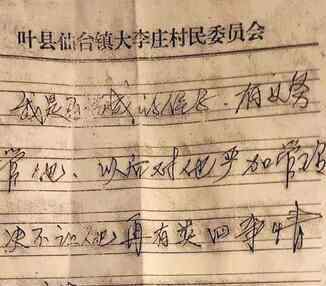 叶县仙台镇大李庄村民委员会
我是 的侄长.有义务
管他、以后对他严加管
决不让他再有类四事情